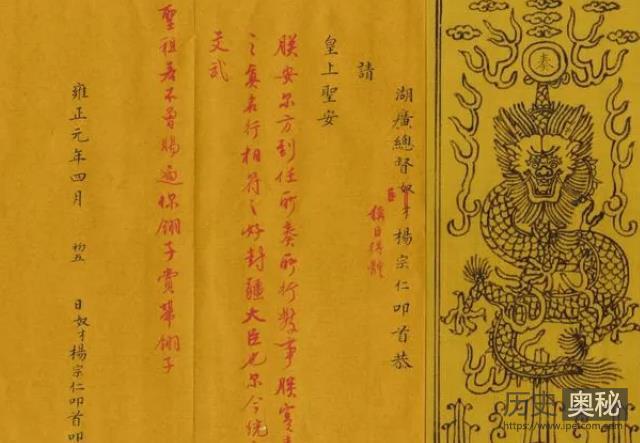 奏
湖廣總督奴才楊宗仁叩首恭
臣
稱臣得體
請
皇上聖安
朕安尔方到任所奏所行數事朕實
之真名行相符之好封疆大臣也尔今統
文武
聖祖若不曾賜過你翎子賞帶翎子
雍正元年四月 初五 日奴才楊宗仁叩首叩
历史·奥秘
https://www.ipetcom.com